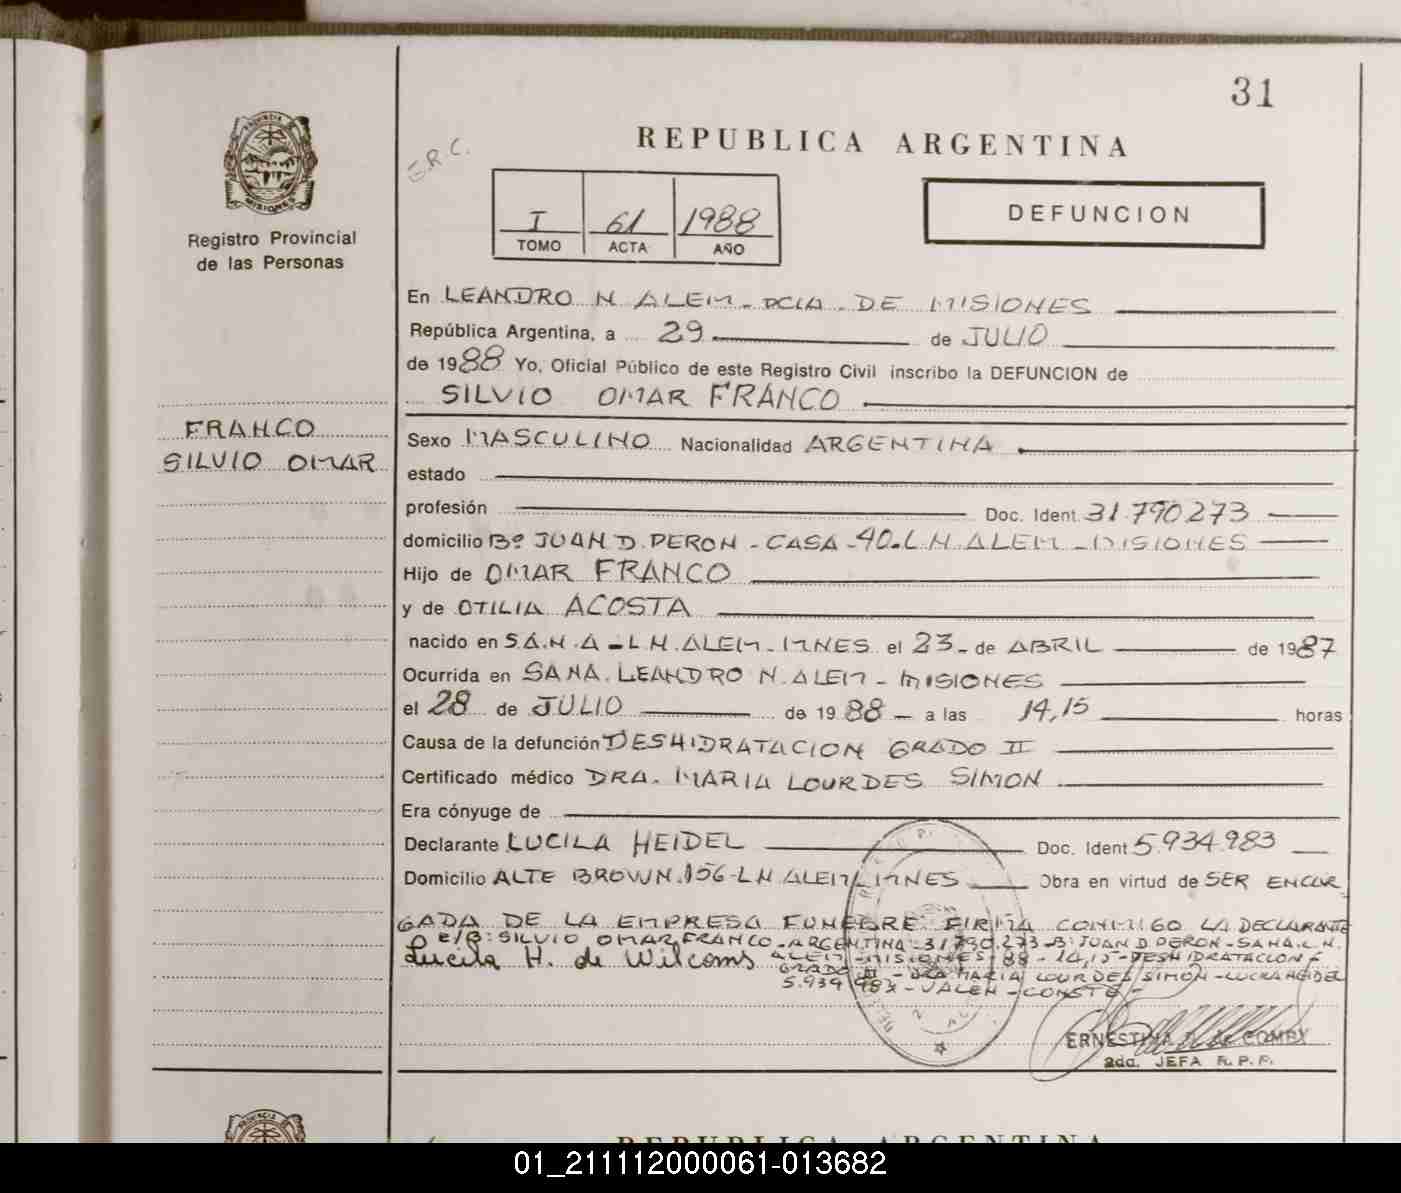 31
REPUBLICA ARGENTINA
E.R.C.
PROVINCIA DE
MISIONES
Registro Provincial
de las Personas
I 61 1988
TOMO ACTA AÑO
DEFUNCION
En LEANDRO N ALEM - PCIA - DE MISIONES
República Argentina, a 29 de JULIO
de 1988 Yo, Oficial Público de este Registro Civil inscribo la DEFUNCION de
SILVIO OMAR FRANCO
FRANCO
SILVIO OMAR
Sexo MASCULINO Nacionalidad ARGENTINA
estado
profesión Doc. Ident. 31.790.273
domicilio Bº JUAN D. PERON - CASA - 40 - L N. ALEM - MISIONES
Hijo de OMAR FRANCO
y de OTILIA ACOSTA
nacido en SA.N.A - L.N. ALEM - MNES el 23 - de ABRIL de 1987
Ocurrida en SANA. LEANDRO N. ALEM - MISIONES
el 28 de JULIO de 1988 - a las 14,15 horas
Causa de la defunción DESHIDRATACION GRADO II
Certificado médico DRA. MARIA LOURDES SIMON
Era cónyuge de
Declarante LUCILA HEIDEL Doc. Ident 5.934.983
Domicilio ALTE BROWN. 156 - L N ALEM MNES Obra en virtud de SER ENCAR
GADA DE LA EMPRESA FUNEBRE FIRMA CONMIGO LA DECLARANTE
e/B: SILVIO OMAR FRANCO - ARGENTINA - 31.790.273 - B: JUAN D. PERON - SANA. L. N.
Lucila H. de Wilcoms ALEM - MISIONES - 88 - 14,15 - DESHIDRATACION
GRADO II - DRA MARIA LOURDES SIMON - LUCILA HEIDEL
5.934.983 - VALEN - CONSTE -
ERNESTINA de COMBY
2da. JEFA R. P. P.
REPUBLICA ARGENTINA
01_211112000061-013682